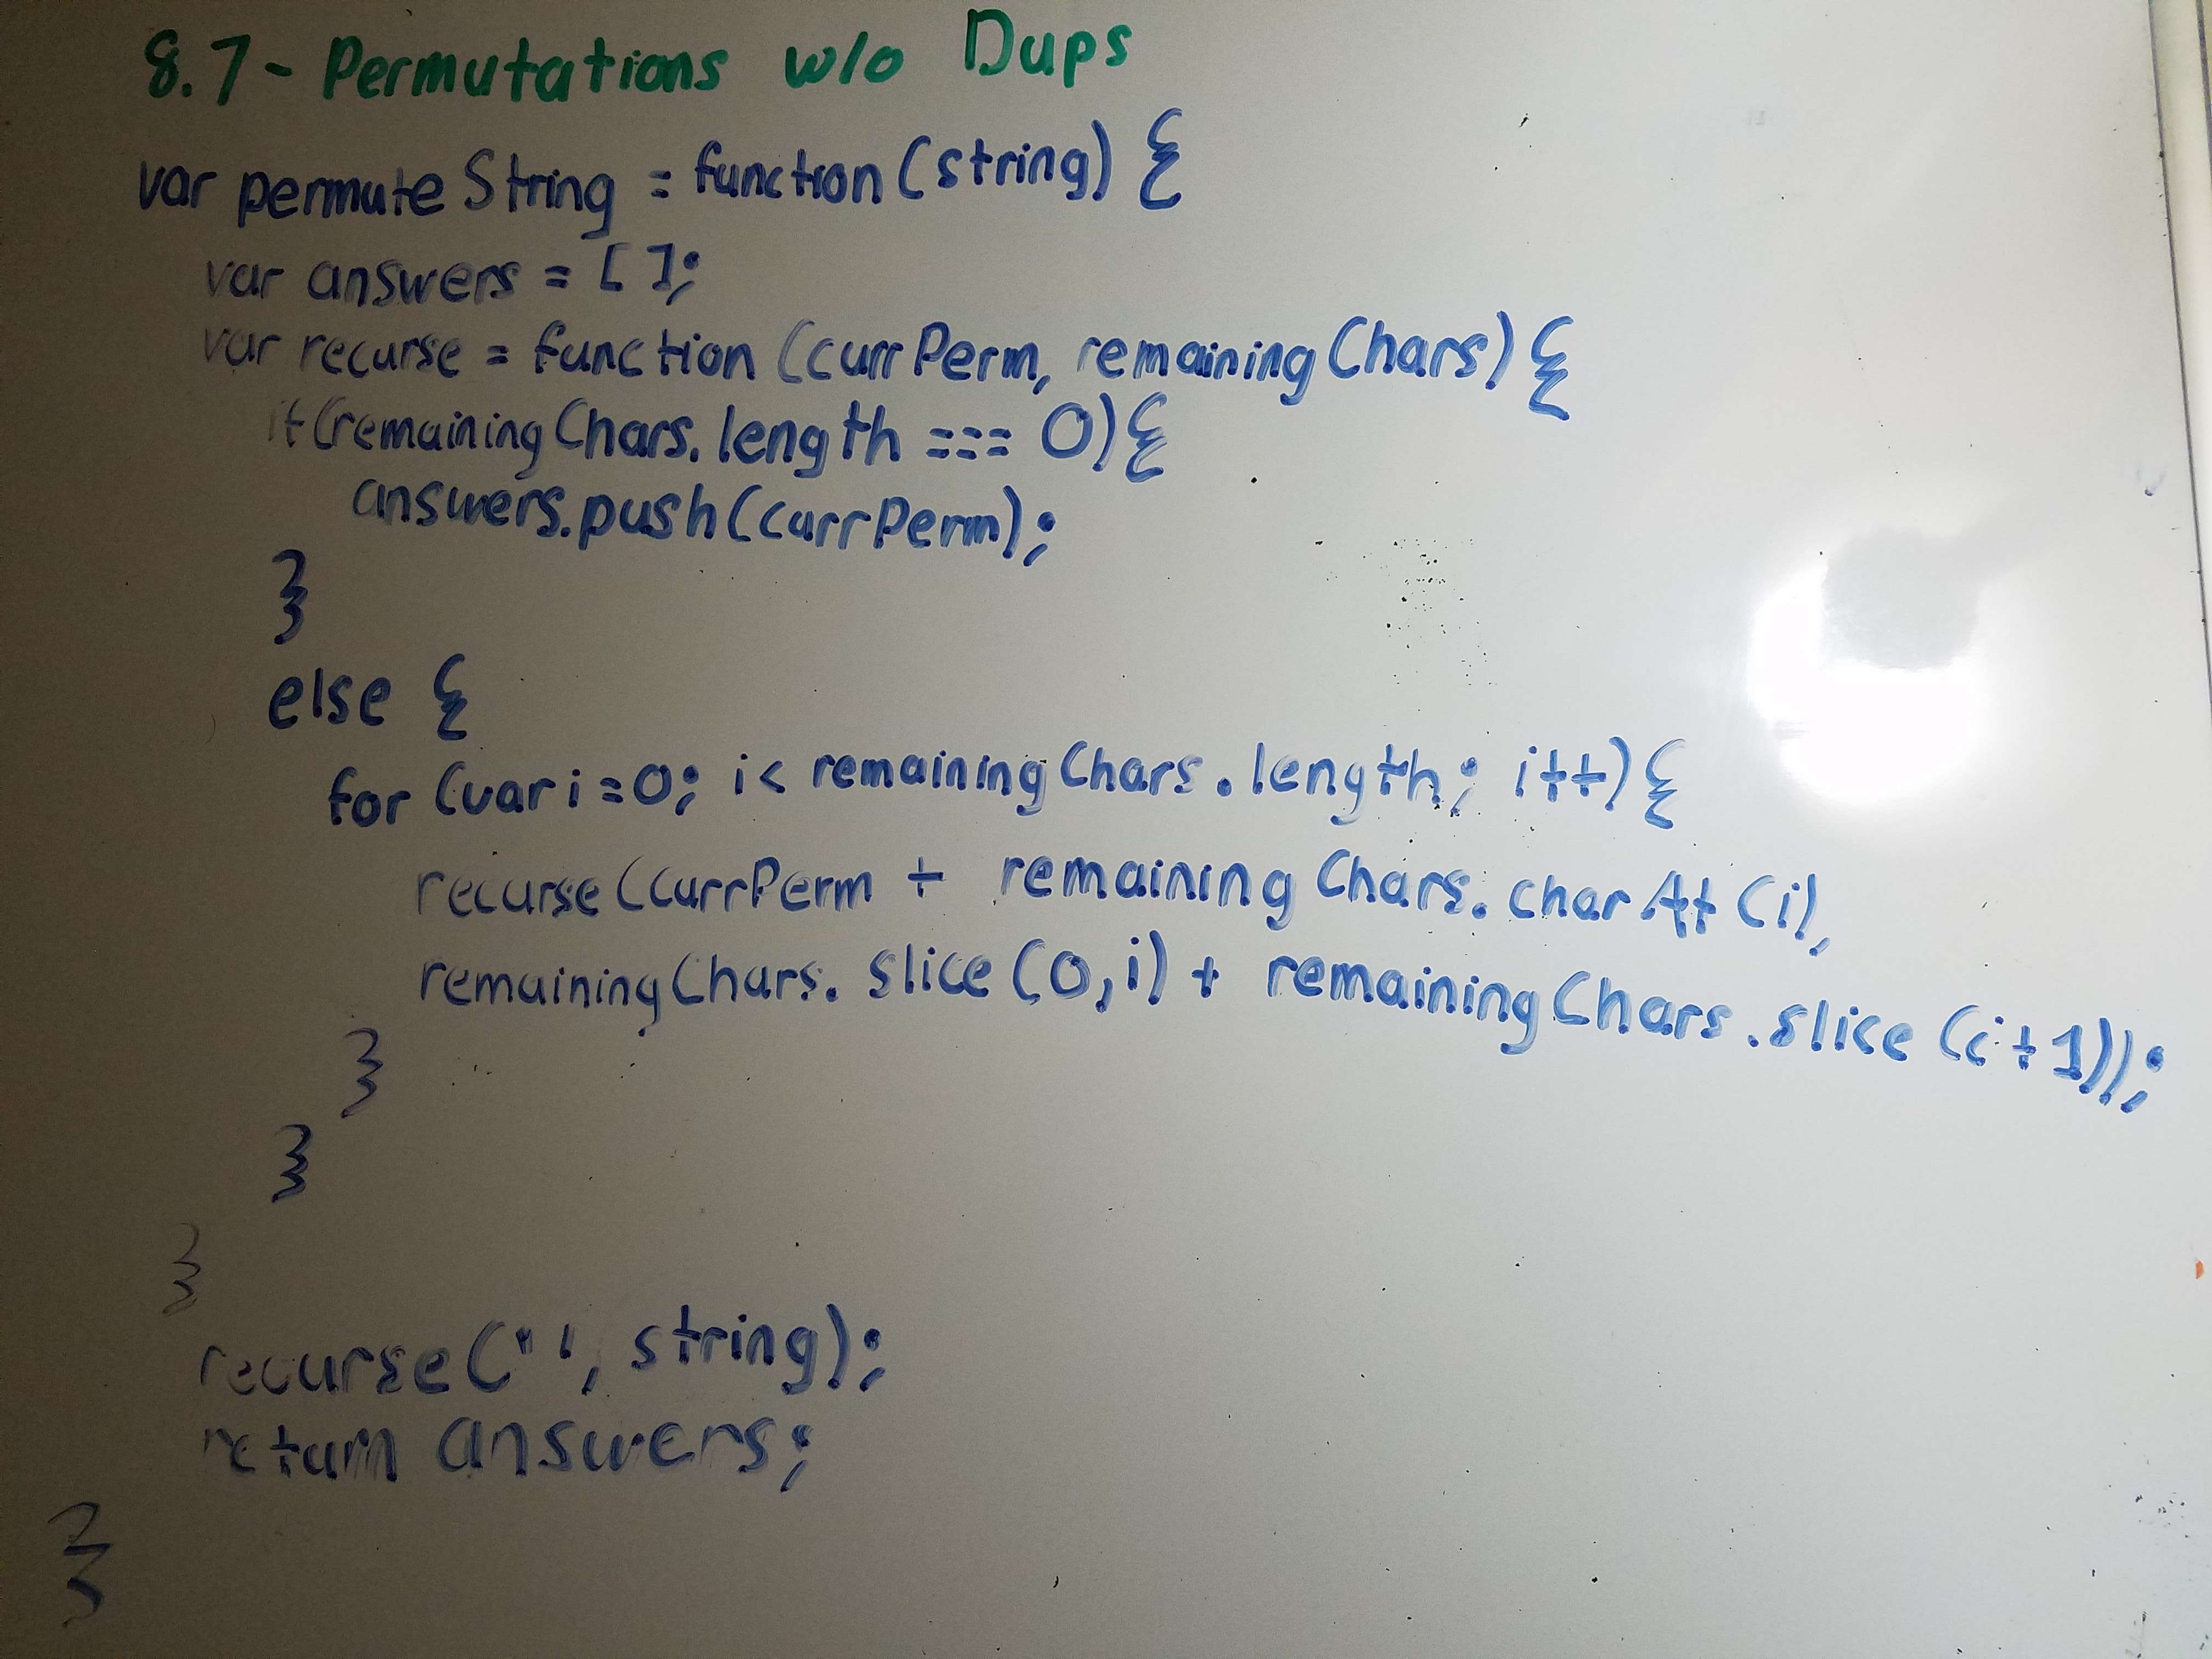 8.7 - Permutations w/o Dups
var permuteString = function(string) {
var answers = [];
var recurse = function (currPerm, remainingChars) {
if(remainingChars.length === 0){
answers.push(currPerm);
}
else {
for (var i=0; i< remainingChars.length; i++){
recurse(currPerm + remainingChars.charAt(i),
remainingChars.slice(0,i) + remainingChars.slice(i+1));
}
}
}
recurse('', string);
return answers;
}